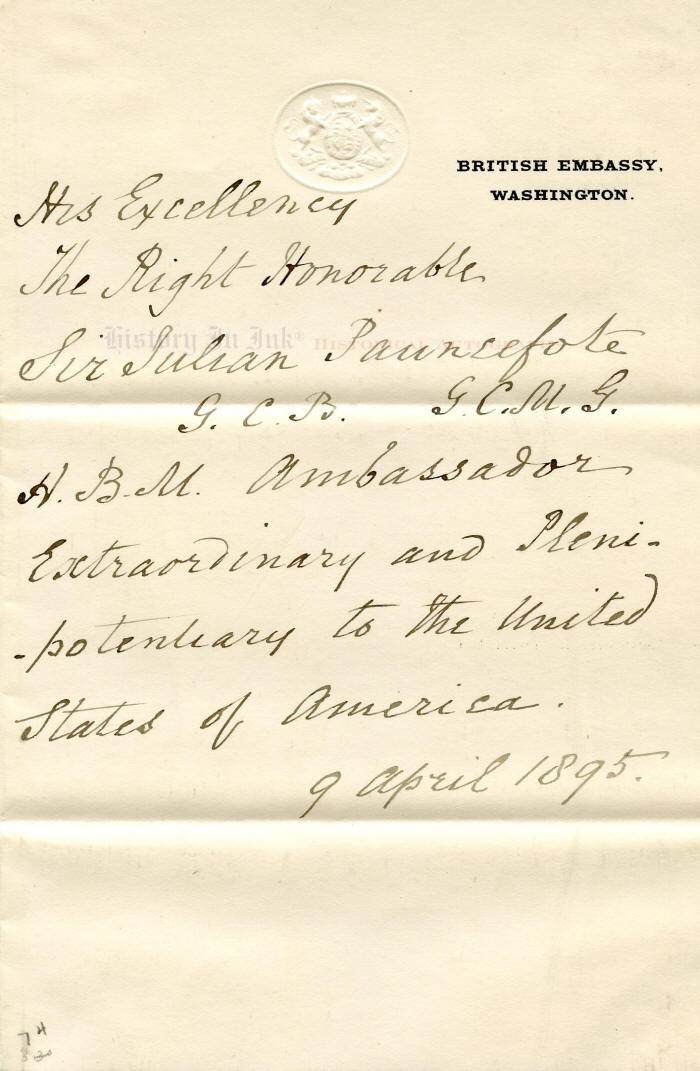 BRITISH EMBASSY,
WASHINGTON.
His Excellency
The Right Honorable
History In Ink® HISTORICAL AUTOGRAPHS
Sir Julian Pauncefote
G. C. B. G.C.M.G.
H.B.M. Ambassador
Extraordinary and Pleni-
-potentiary to the United
States of America.
9 April 1895.
74